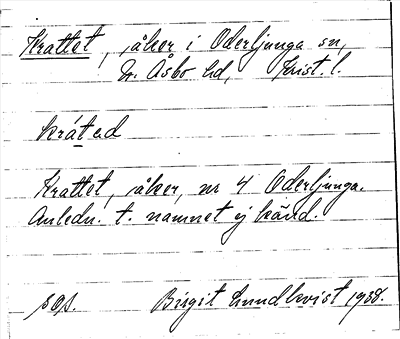 Krattet, åker i Oderljunga sn,
N. Åsbo hd, Krist. l.
krátəd
Krattet, åker, nr 4 Oderljunga.
Anledn. t. namnet ej känd.
Birgit Lundkvist 1938.